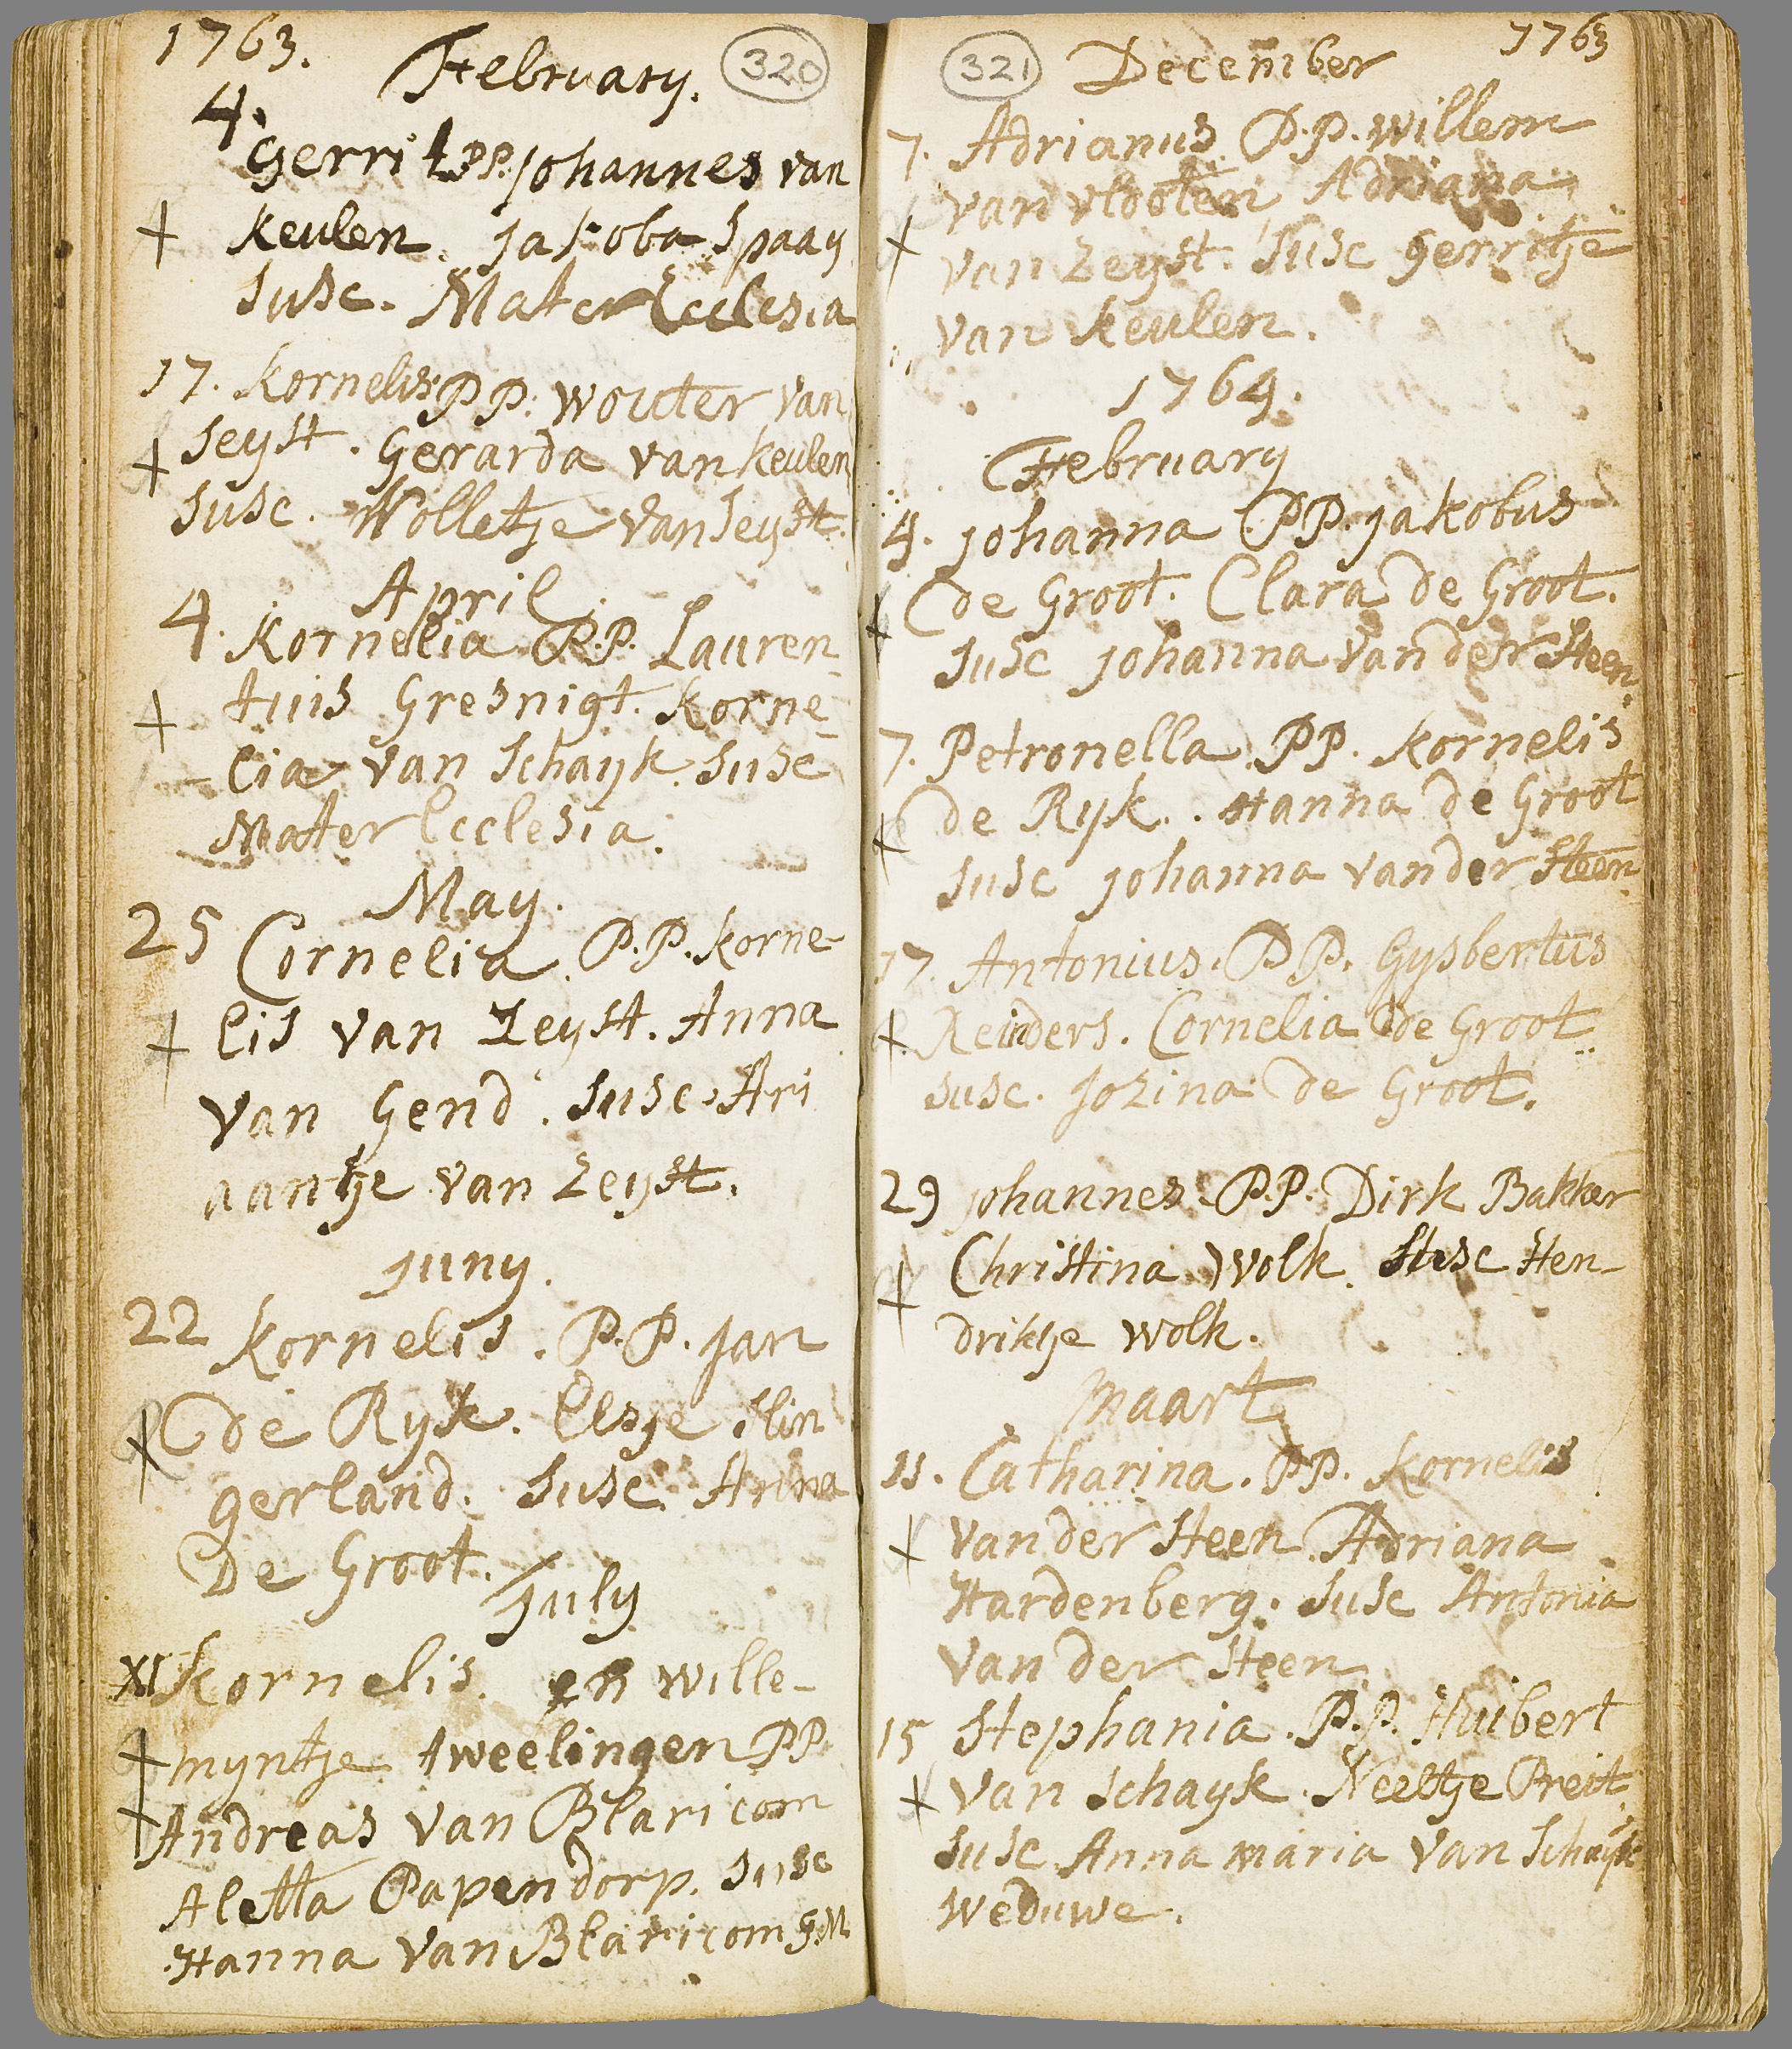 1763.
February. 320
4.
Gerrit PP. Johannes van
Keulen. Jakoba Spaay
Susc. Mater Ecclesia
17. Kornelis PP. Wouter van
Seyst. Gerarda van Keulen
Susc. Wolletje van Seyst.
April.
4. Kornelia P.P. Lauren-
tuis Gresnigt. Korne-
lia van Schayk. Susc
Mater Ecclesia.
May.
25 Cornelia. P.P. Korne-
lis van Zeyst. Anna
van Gend. Susc. Ari
aantje van Zeyst.
Juny.
22 Kornelis. P.P. Jan
de Ryk. Elsje Slin
gerland. Susc. Anna
De Groot.
July
XI Kornelis. en Wille-
myntje tweelingen PP
Andreas van Blaricom
Aletta Papendorp. Susc
Hanna van Blaricom G.M
321 December 1763
7. Adrianus P.P. Willem
van Vlooten Adriana
van Zeyst. Susc Gerritje
van Keulen.
1764.
February
4. Johanna PP. Jakobus
de Groot. Clara de Groot.
Susc Johanna van der Steen.
7. Petronella. PP. Kornelis
de Ryk. Hanna de Groot
Susc Johanna van der Steen
17. Antonius. PP. Gysbertus
Reinders. Cornelia de Groot
Susc. Jozina de Groot.
29 Johannes. P.P. Dirk Bakker
Christina Wolk. Susc Hen-
drikje Wolk.
Maart
11. Catharina. PP. Kornelis
van der Steen. Adriana
Hardenberg. Susc Antonia
van der Steen
15 Stephania. P.P. Huibert
van Schayk. Neeltje Preit
Susc Anna Maria van Schayk
weduwe.